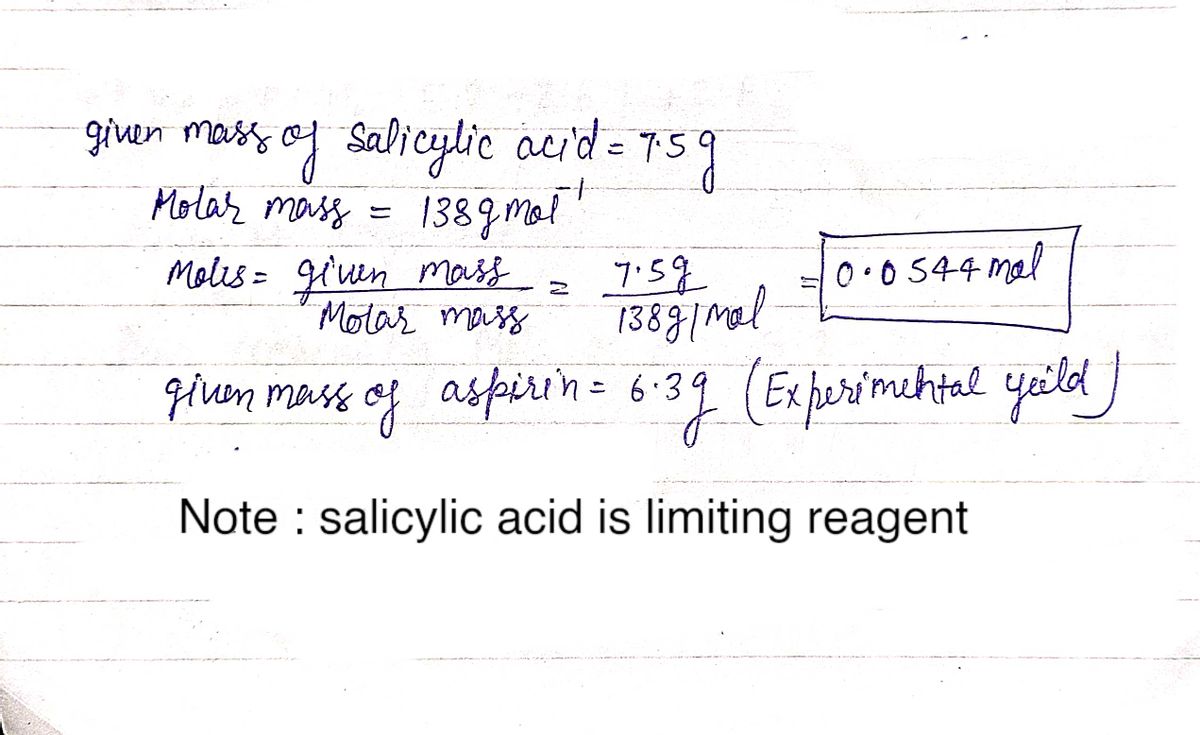 given mass of Salicylic acid = 7.5 g
Molar mass = 138 g mol⁻¹
Moles = given mass / Molar mass = 7.5g / 138g/mol = 0.0544 mol
given mass of aspirin = 6.3g (Experimental yeild)
Note : salicylic acid is limiting reagent